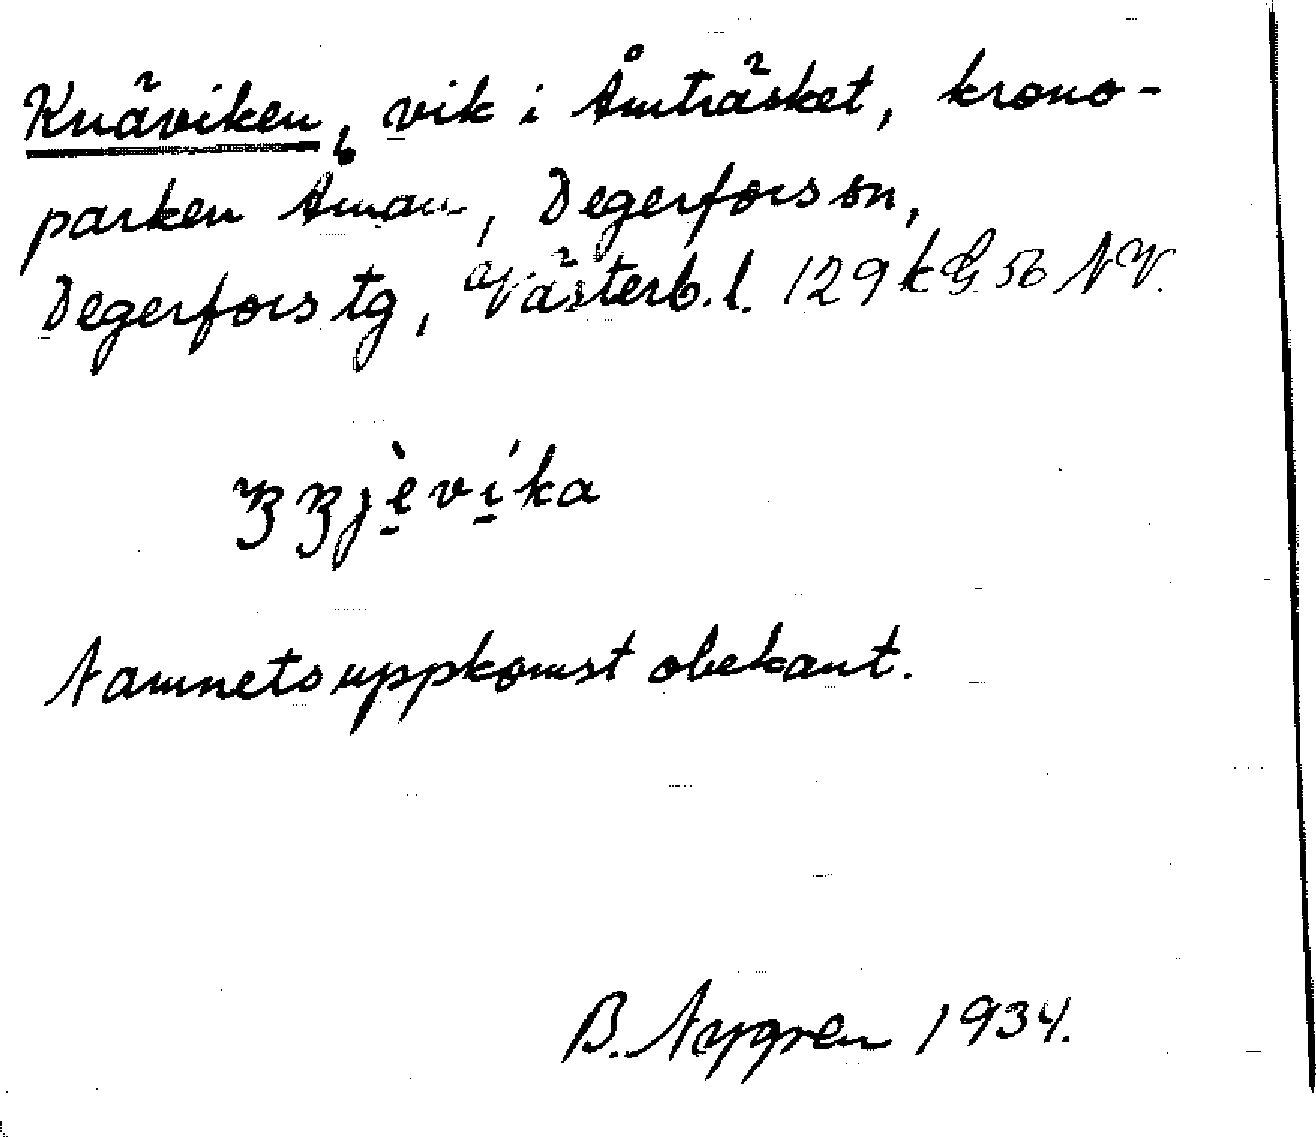 Knäviken, vik i Åmträsket, krono-
parken Åman, Degerfors sn,
Degerfors tg, Västerb. l. 129 k G 56 NV.
Namnets uppkomst obekant.
B. Nygren 1934.